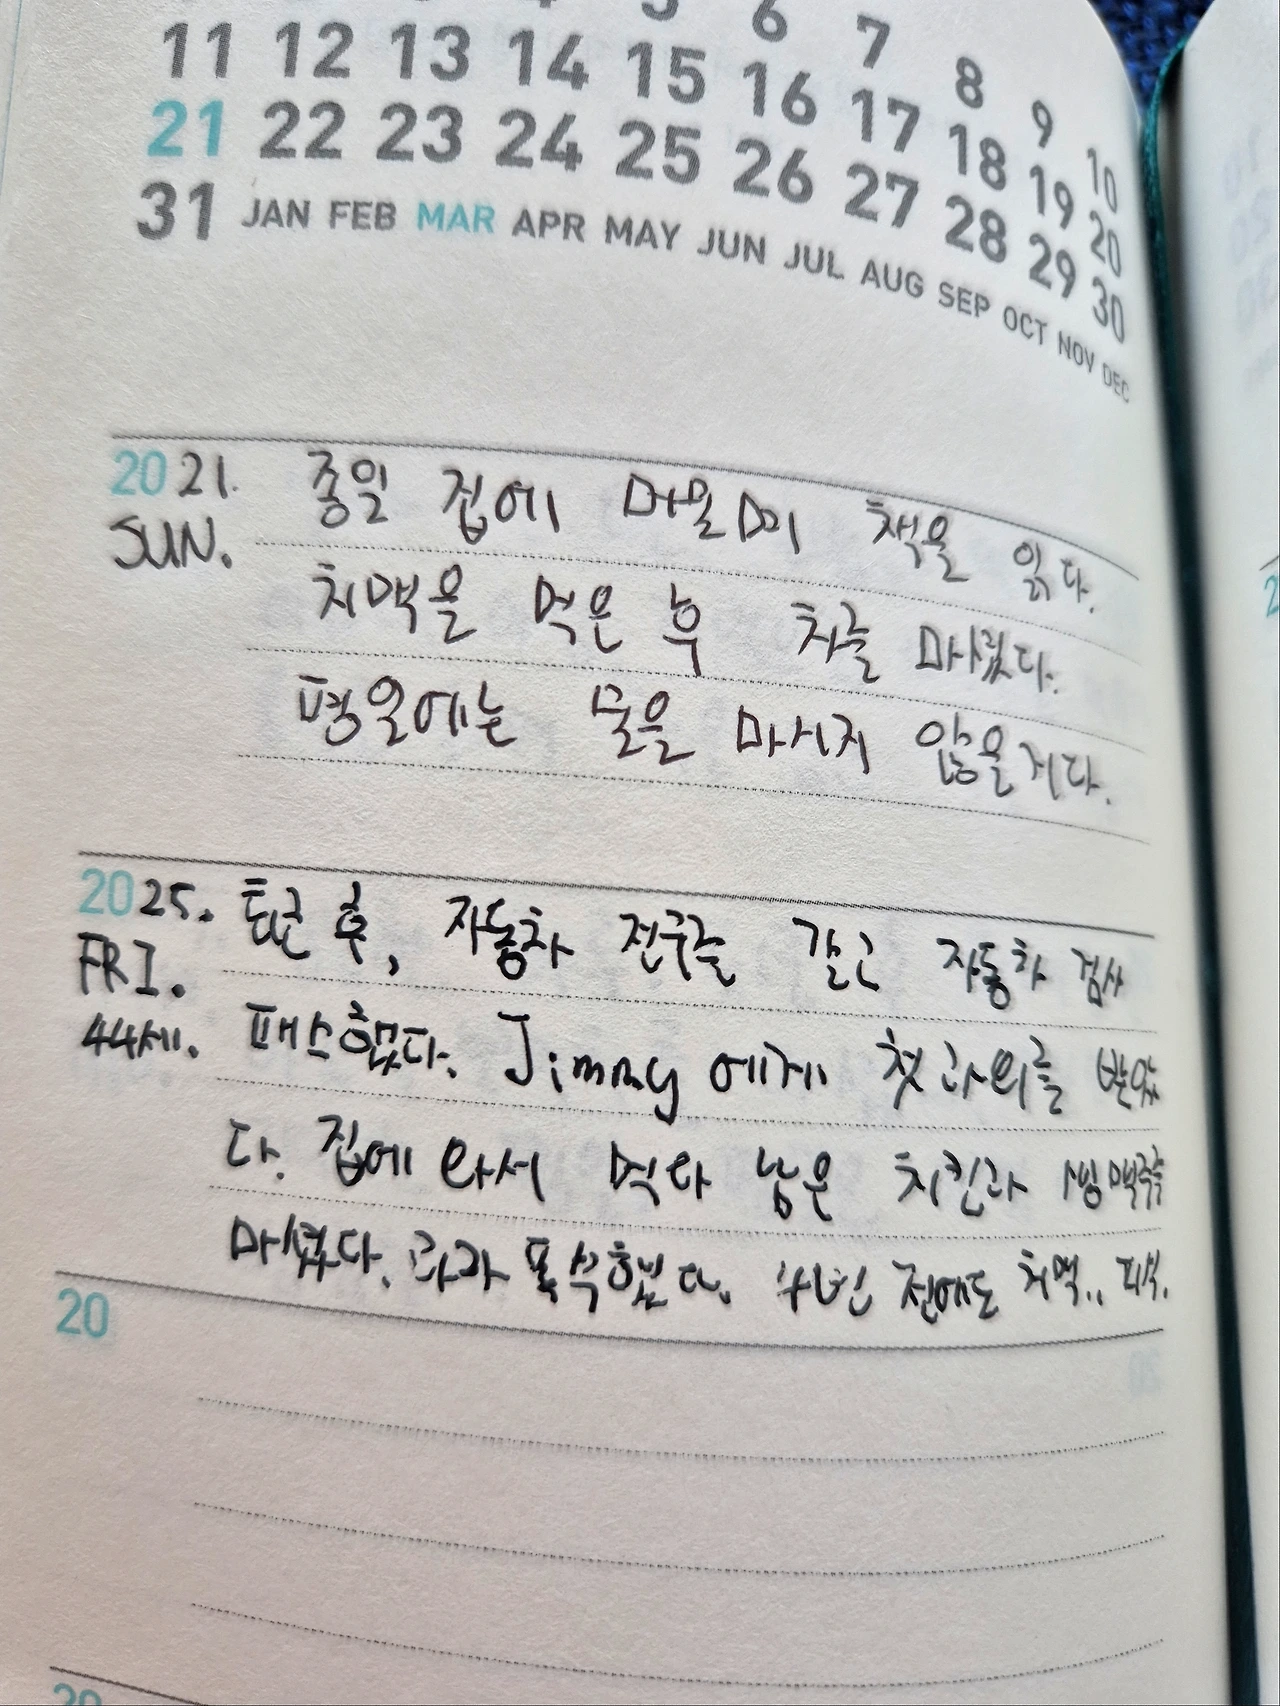 4 5 6 7 8 9 10
11 12 13 14 15 16 17 18 19 20
21 22 23 24 25 26 27 28 29 30
31 JAN FEB MAR APR MAY JUN JUL AUG SEP OCT NOV DEC
2021. 종일 집에 머물며 책을 읽다.
SUN. 치맥을 먹은 후 차를 마셨다.
평일에는 물을 마시지 않을거다.
2025. 퇴근 후, 자동차 전구를 갈고 자동차 검사
FRI. 패스했다. Jimmy에게 첫 과외를 받았
44세. 다. 집에 와서 먹다 남은 치킨과 1병 맥주를
마셨다. 폭식했다. 4년 전에도 치맥..
20
20